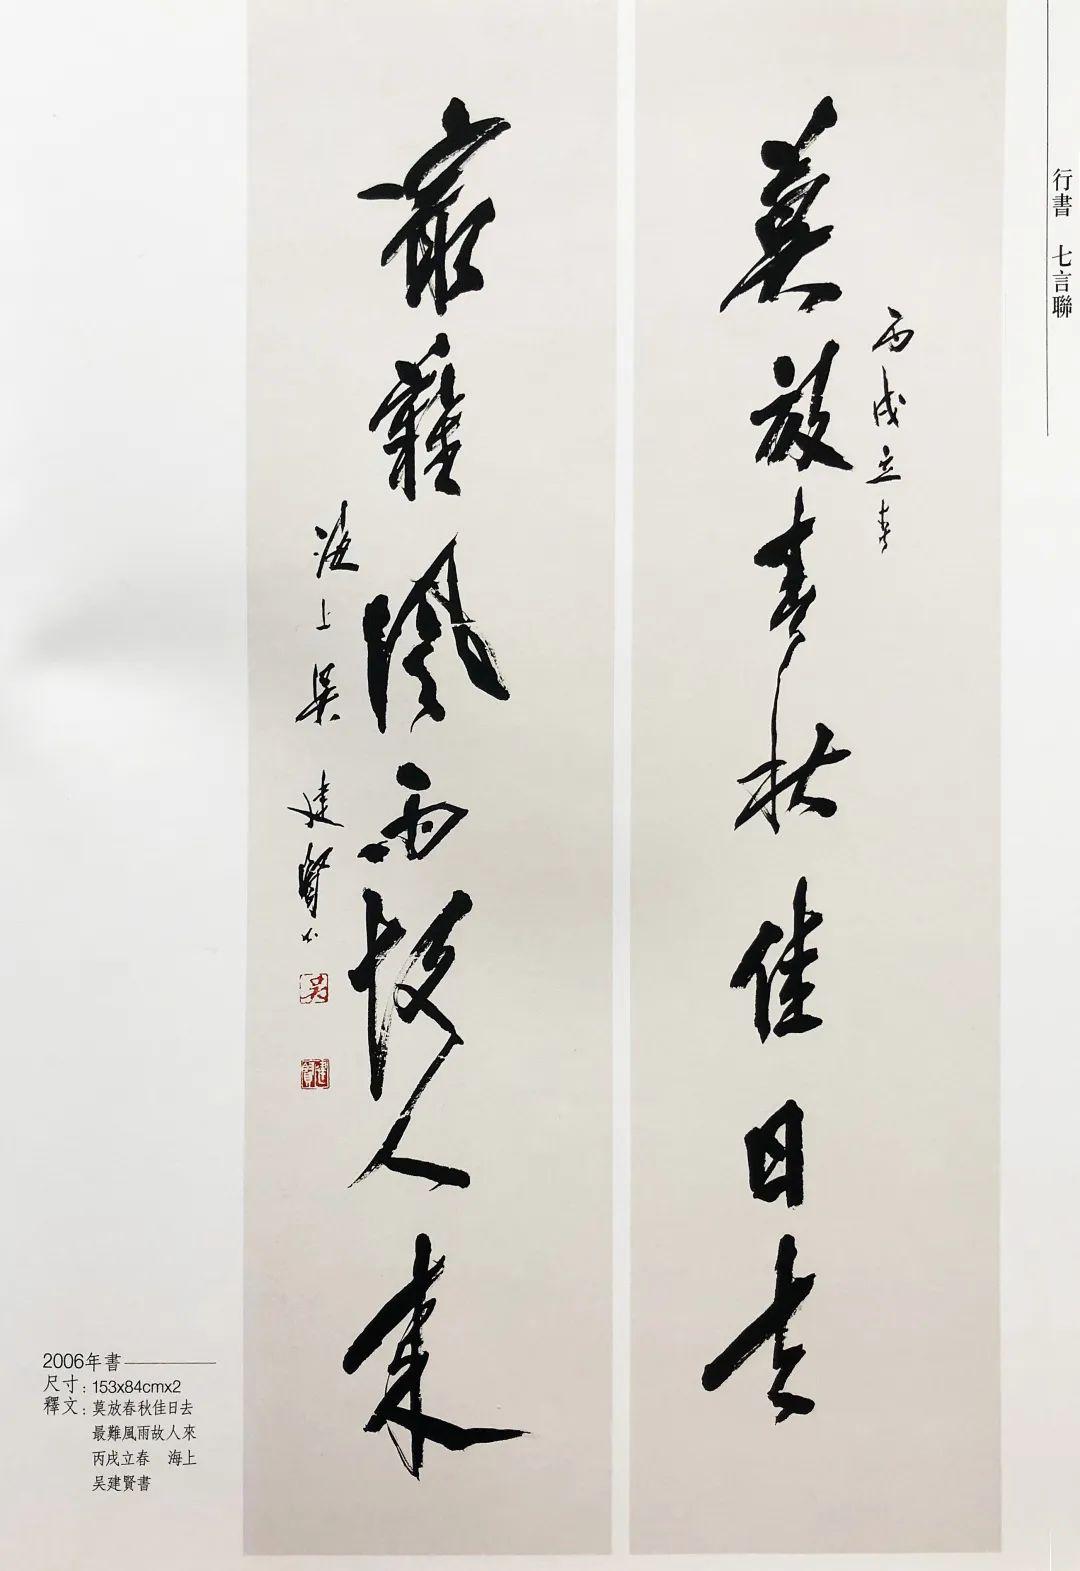 行書 七言聯
丙戌立春
莫放春秋佳日去
最難風雨故人來
海上吴建賢書
吴
建賢
2006年書
尺寸：153x84cmx2
釋文：莫放春秋佳日去
最難風雨故人來
丙戌立春 海上
吴建賢書